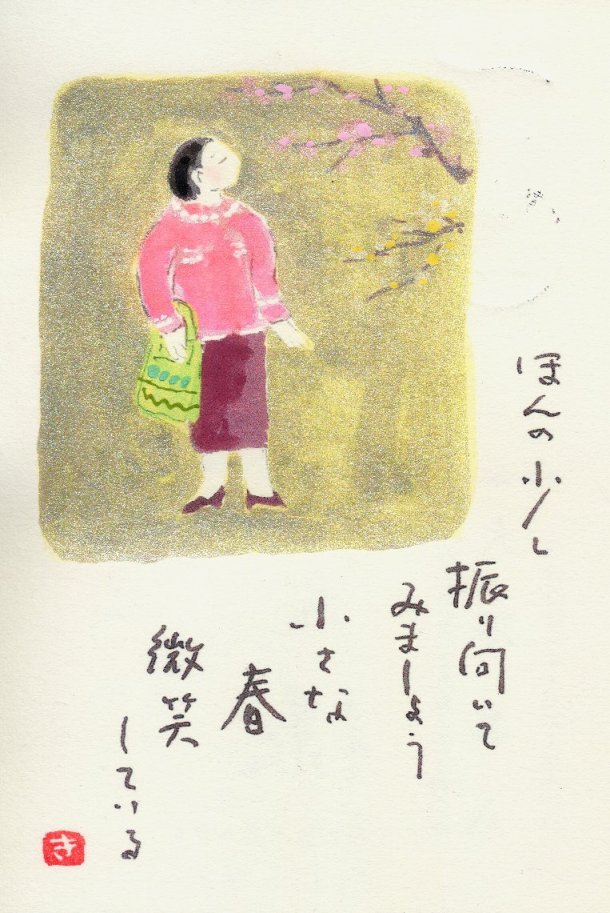 ほんの少し
振り向いて
みましょう
小さな
春
微笑
している
き